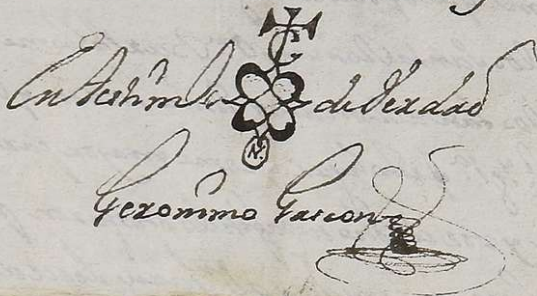 En testim.º de Verdad
N.
Geronimo Gascon